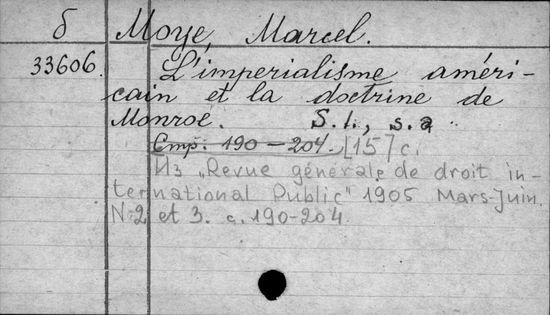 б Moye, Marcel.
33606. L'imperialisme améri-
cain et la doctrine de
Monroe. S. l., s. a.
Стр. 190 - 204. [15] с.
Из „Revue générale de droit in-
ternational Public" 1905 Mars-Juin.
N. 2 et 3. с. 190-204.